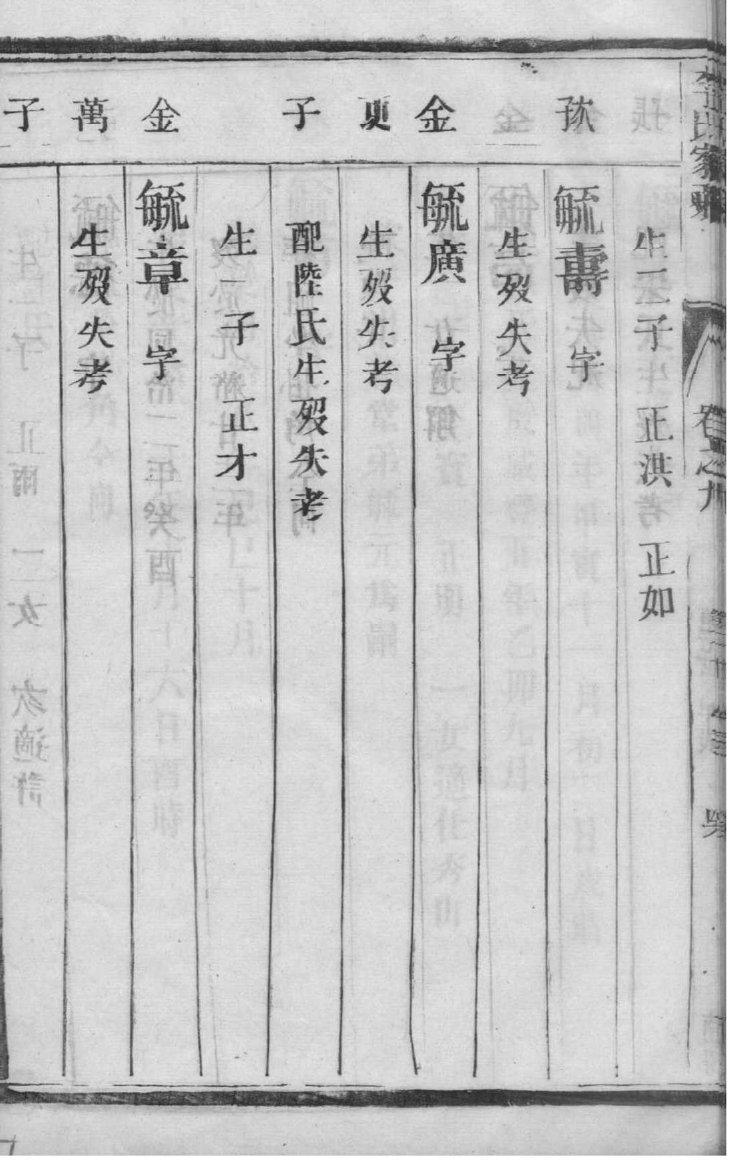 生二子 正洪 正如
毓壽 字
生殁失考
金
毓廣 字
更
生殁失考
子
配陸氏生殁失考
生一子 正才
金
毓章 字
萬
生殁失考
子